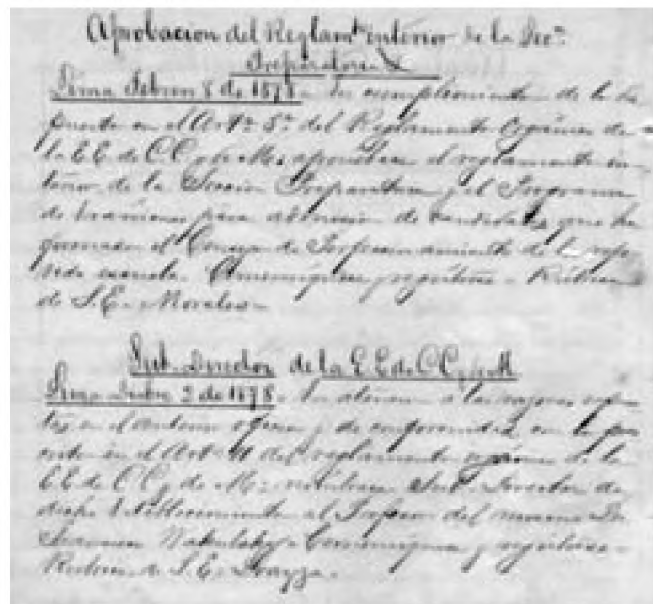 Aprobacion del Reglamto interior de la Secn.
Preparatoria
Lima Febrero 8 de 1878 - En cumplimiento de lo dis
puesto en el Arto. 5o. del Reglamento Orgánico de
la E.E. de C.C. y de M.: apruébase el reglamento in-
terior de la Seccion Preparatoria y el Programa
de Exámenes para admision de candidatos, que ha
formado el Consejo de Perfeccionamiento de la refe-
rida escuela. Comuníquese y regístrese - Rúbrica
de S.E. - Morales -
Sub-Director de la E.E. de C.C. y de M
Lima 2 de 1878 - En atencion a las razones
en el anterior oficio y de conformidad con lo
en el Art. del reglamento orgánico de la
E.E. de C.C. y de M.: nómbrase Sub-Director de
dicho Establecimiento al Profesor del mismo Dn
Habich - Comuníquese y regístrese -
Rúbrica de S.E. -